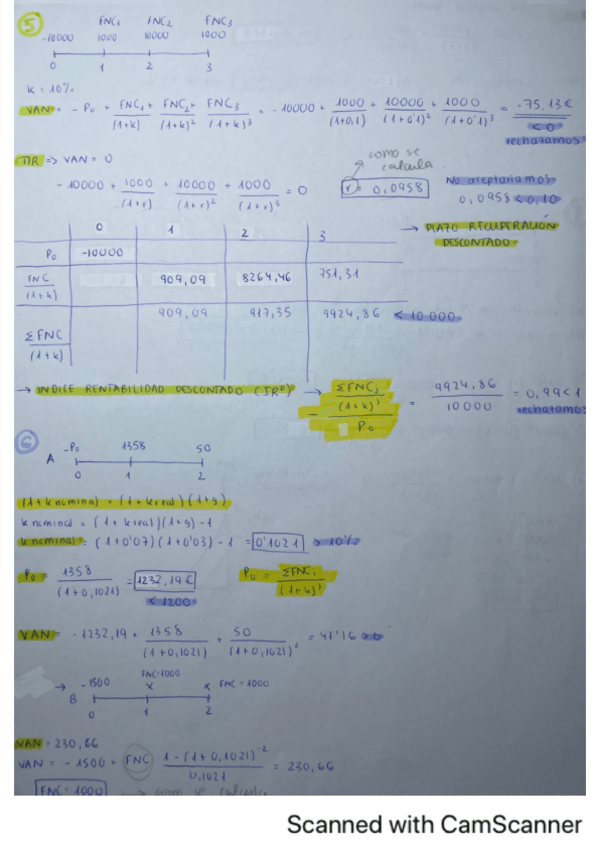 5
FNC1 FNC2 FNC3
-10000 1000 10000 1000
0 1 2 3
K = 10%
VAN = - P0 + FNC1/(1+k) + FNC2/(1+k)² + FNC3/(1+k)³ = -10000 + 1000/(1+0,1) + 10000/(1+0'1)² + 1000/(1+0'1)³ = -75,13€
< 0
rechazamos
TIR => VAN = 0
como se calcula
-10000 + 1000/(1+r) + 10000/(1+r)² + 1000/(1+r)³ = 0
r = 0,0958
No aceptaríamos
0,0958 < 0,10
0 1 2 3
→ PLAZO RECUPERACIÓN
DESCONTADO
P0 -10000
FNC/(1+k) 909,09 8264,46 751,31
909,09 917,35 9924,86 < 10 000
ΣFNC/(1+k)
→ INDICE RENTABILIDAD DESCONTADO (IRD) → ΣFNCj/(1+k)j / P0 = 9924,86/10000 = 0,99 < 1
rechazamos
6
-P0 1358 50
A
0 1 2
(1+k nominal) = (1+k real)(1+g)
k nominal = (1+k real)(1+g) - 1
k nominal = (1+0'07)(1+0'03) - 1 = 0'1021 > 10%
P0 = 1358/(1+0,1021) = 1232,19€
< 1200
P0 = ΣFNCj/(1+k)j
VAN = -1232,19 + 1358/(1+0,1021) + 50/(1+0,1021)² = 41'16 > 0
→ -1500 FNC=1000 x x FNC = 1000
B
0 1 2
VAN = 230,66
VAN = -1500 + FNC 1-(1+0,1021)-2/0,1021 = 230,66
FNC = 1000 → como se calcula
Scanned with CamScanner